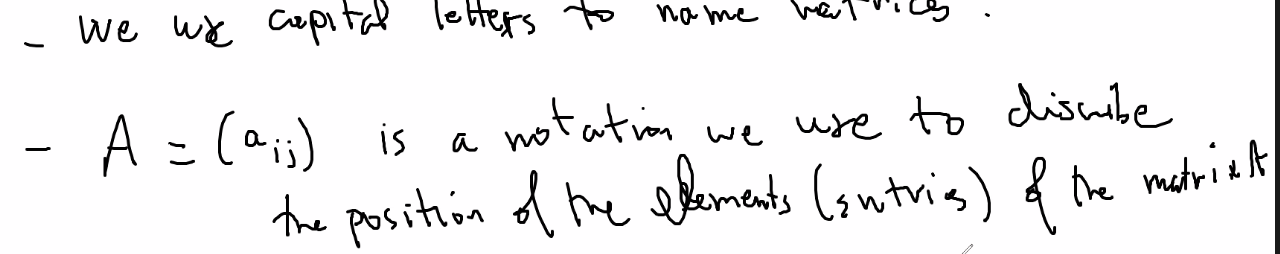 - We use capital letters to name matrices.
- A = (aij) is a notation we use to discribe
the position of the elements (entries) of the matrix A